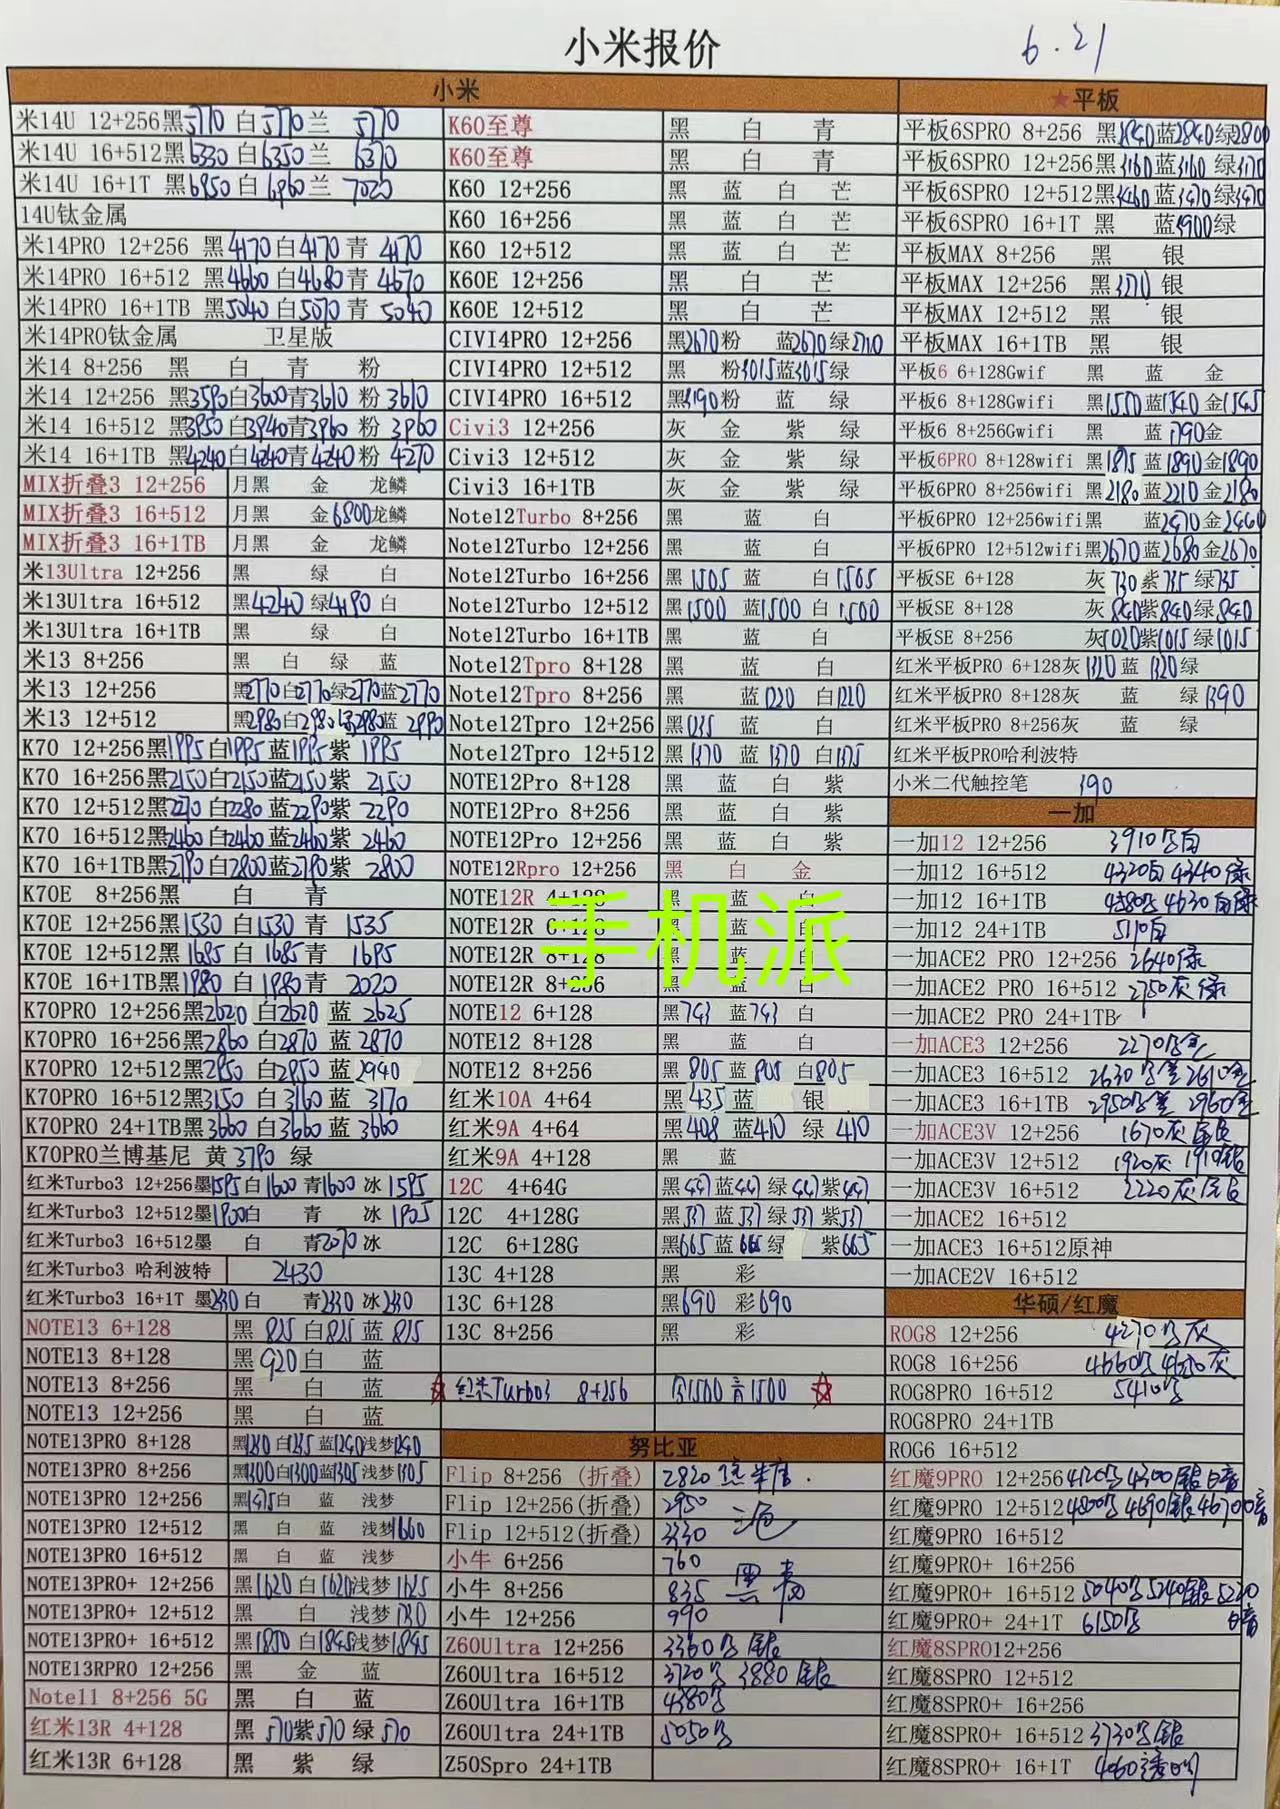 小米报价
6.21
小米
米14U 12+256黑5770 白5770兰 5770
米14U 16+512黑6330 白6350兰 6370
米14U 16+1T 黑6950白 6960兰 7020
14U钛金属
米14PRO 12+256 黑4170白4170青 4170
米14PRO 16+512 黑4660白4680青 4670
米14PRO 16+1TB 黑5040白5070青 5040
米14PRO钛金属 卫星版
米14 8+256 黑 白 青 粉
米14 12+256 黑3590白3600青3610 粉 3610
米14 16+512 黑3950白3940青3960 粉 3960
米14 16+1TB 黑4240白4240青4240 粉 4270
MIX折叠3 12+256 月黑 金 龙鳞
MIX折叠3 16+512 月黑 金6800龙鳞
MIX折叠3 16+1TB 月黑 金 龙鳞
米13Ultra 12+256 黑 绿 白
米13Ultra 16+512 黑4240 绿4190 白
米13Ultra 16+1TB 黑 绿 白
米13 8+256 黑 白 绿 蓝
米13 12+256 黑2770白2770绿2770蓝2770
米13 12+512 黑2980白2980绿2980蓝 2990
K70 12+256黑1995白1995蓝1995紫 1995
K70 16+256黑2150白2150蓝2150紫 2150
K70 12+512黑2270白2280蓝2290紫 2290
K70 16+512黑2460白2460蓝2460紫 2460
K70 16+1TB黑2790白2800蓝2790紫 2800
K70E 8+256黑 白 青
K70E 12+256黑1530 白1530 青 1535
K70E 12+512黑1685 白 1685青 1695
K70E 16+1TB黑1980 白 1980青 2020
K70PRO 12+256黑2620 白2620 蓝 2625
K70PRO 16+256黑2860 白2870 蓝 2870
K70PRO 12+512黑2950 白2950 蓝 2940
K70PRO 16+512黑3150 白3160 蓝 3170
K70PRO 24+1TB黑3660 白3660 蓝 3660
K70PRO兰博基尼 黄3790 绿
红米Turbo3 12+256墨1595白1600 青1600 冰 1595
红米Turbo3 12+512墨1900白 青 冰 1905
红米Turbo3 16+512墨 白 青2070冰
红米Turbo3 哈利波特 2430
红米Turbo3 16+1T 墨2330白 青2330 冰2330
NOTE13 6+128 黑 825 白825 蓝 815
NOTE13 8+128 黑 920白 蓝
NOTE13 8+256 黑 白 蓝
NOTE13 12+256 黑 白 蓝
NOTE13PRO 8+128 黑1230白1235蓝1240浅梦1240
NOTE13PRO 8+256 黑1300白1300蓝1305浅梦1305
NOTE13PRO 12+256 黑1475白 蓝 浅梦
NOTE13PRO 12+512 黑 白 蓝 浅梦1660
NOTE13PRO 16+512 黑 白 蓝 浅梦
NOTE13PRO+ 12+256 黑1620白1620浅梦1625
NOTE13PRO+ 12+512 黑 白 浅梦1730
NOTE13PRO+ 16+512 黑1850白1845浅梦1845
NOTE13RPRO 12+256 黑 金 蓝
Note11 8+256 5G 黑 白 蓝
红米13R 4+128 黑 570紫570 绿 570
红米13R 6+128 黑 紫 绿
K60至尊 黑 白 青
K60至尊 黑 白 青
K60 12+256 黑 蓝 白 芒
K60 16+256 黑 蓝 白 芒
K60 12+512 黑 蓝 白 芒
K60E 12+256 黑 白 芒
K60E 12+512 黑 白 芒
CIVI4PRO 12+256 黑2670粉 蓝2670绿2710
CIVI4PRO 12+512 黑 粉3015蓝3015绿
CIVI4PRO 16+512 黑3190粉 蓝 绿
Civi3 12+256 灰 金 紫 绿
Civi3 12+512 灰 金 紫 绿
Civi3 16+1TB 灰 金 紫 绿
Note12Turbo 8+256 黑 蓝 白
Note12Turbo 12+256 黑 蓝 白
Note12Turbo 16+256 黑 1505 蓝 白1505
Note12Turbo 12+512 黑1500 蓝1500 白 1500
Note12Turbo 16+1TB 黑 蓝 白
Note12Tpro 8+128 黑 蓝 白
Note12Tpro 8+256 黑 蓝1220 白1210
Note12Tpro 12+256 黑1235 蓝 白
Note12Tpro 12+512 黑1370 蓝 1370 白1375
NOTE12Pro 8+128 黑 蓝 白 紫
NOTE12Pro 8+256 黑 蓝 白 紫
NOTE12Pro 12+256 黑 蓝 白 紫
NOTE12Rpro 12+256 黑 白 金
NOTE12R 4+128 黑 蓝 白
NOTE12R 6+128 黑 蓝 白
NOTE12R 8+128 黑 蓝 白
NOTE12R 8+256 黑 白
手机派
NOTE12 6+128 黑743 蓝743 白
NOTE12 8+128 黑 蓝 白
NOTE12 8+256 黑 805 蓝 805 白805
红米10A 4+64 黑 435蓝 银
红米9A 4+64 黑408 蓝410 绿 410
红米9A 4+128 黑 蓝
12C 4+64G 黑447蓝447 绿447紫447
12C 4+128G 黑537蓝537绿537紫537
12C 6+128G 黑665蓝665绿 紫665
13C 4+128 黑 彩
13C 6+128 黑690 彩690
13C 8+256 黑 彩
☆红米Turbo3 8+256 白1500 青1500 ☆
努比亚
Flip 8+256 (折叠) 2820
Flip 12+256(折叠) 2950 三色
Flip 12+512(折叠) 3330
小牛 6+256 760
小牛 8+256 835 黑 青
小牛 12+256 990
Z60Ultra 12+256 3360黑 银
Z60Ultra 16+512 3720黑 3880银
Z60Ultra 16+1TB 4380黑
Z60Ultra 24+1TB 5050黑
Z50Spro 24+1TB
★平板
平板6SPRO 8+256 黑2840蓝2840绿2800
平板6SPRO 12+256黑3160蓝3160 绿3170
平板6SPRO 12+512黑3460蓝3470绿3470
平板6SPRO 16+1T 黑 蓝3900绿
平板MAX 8+256 黑 银
平板MAX 12+256 黑3270 银
平板MAX 12+512 黑 银
平板MAX 16+1TB 黑 银
平板6 6+128Gwif 黑 蓝 金
平板6 8+128Gwifi 黑1550蓝1540 金1545
平板6 8+256Gwifi 黑 蓝1790金
平板6PRO 8+128wifi 黑1875 蓝1890金1890
平板6PRO 8+256wifi 黑2180蓝2210 金2180
平板6PRO 12+256wifi黑 蓝2470金2460
平板6PRO 12+512wifi黑2670蓝2680金2670
平板SE 6+128 灰 730紫735 绿735
平板SE 8+128 灰 840紫840绿840
平板SE 8+256 灰1020紫1015 绿1015
红米平板PRO 6+128灰 1320 蓝 1320绿
红米平板PRO 8+128灰 蓝 绿 1390
红米平板PRO 8+256灰 蓝 绿
红米平板PRO哈利波特
小米二代触控笔 390
一加
一加12 12+256 3910黑白
一加12 16+512 4320白 4340绿
一加12 16+1TB 4580黑 4630 白绿
一加12 24+1TB 5110白
一加ACE2 PRO 12+256 2640绿
一加ACE2 PRO 16+512 2750灰绿
一加ACE2 PRO 24+1TB
一加ACE3 12+256 2270黑金
一加ACE3 16+512 2630黑蓝2610金
一加ACE3 16+1TB 2950黑蓝 2960金
一加ACE3V 12+256 1670灰 银
一加ACE3V 12+512 1920灰 1910银
一加ACE3V 16+512 2220灰银
一加ACE2 16+512
一加ACE3 16+512原神
一加ACE2V 16+512
华硕/红魔
ROG8 12+256 4270黑灰
ROG8 16+256 4660黑 4650灰
ROG8PRO 16+512 5410黑
ROG8PRO 24+1TB
ROG6 16+512
红魔9PRO 12+256 4120黑4300银白暗
红魔9PRO 12+512 4800黑4690银4670暗
红魔9PRO 16+512
红魔9PRO+ 16+256
红魔9PRO+ 16+512 5040黑5240银5220
红魔9PRO+ 24+1T 6150黑 白暗
红魔8SPRO12+256
红魔8SPRO 12+512
红魔8SPRO+ 16+256
红魔8SPRO+ 16+512 3730黑银
红魔8SPRO+ 16+1T 4060透明